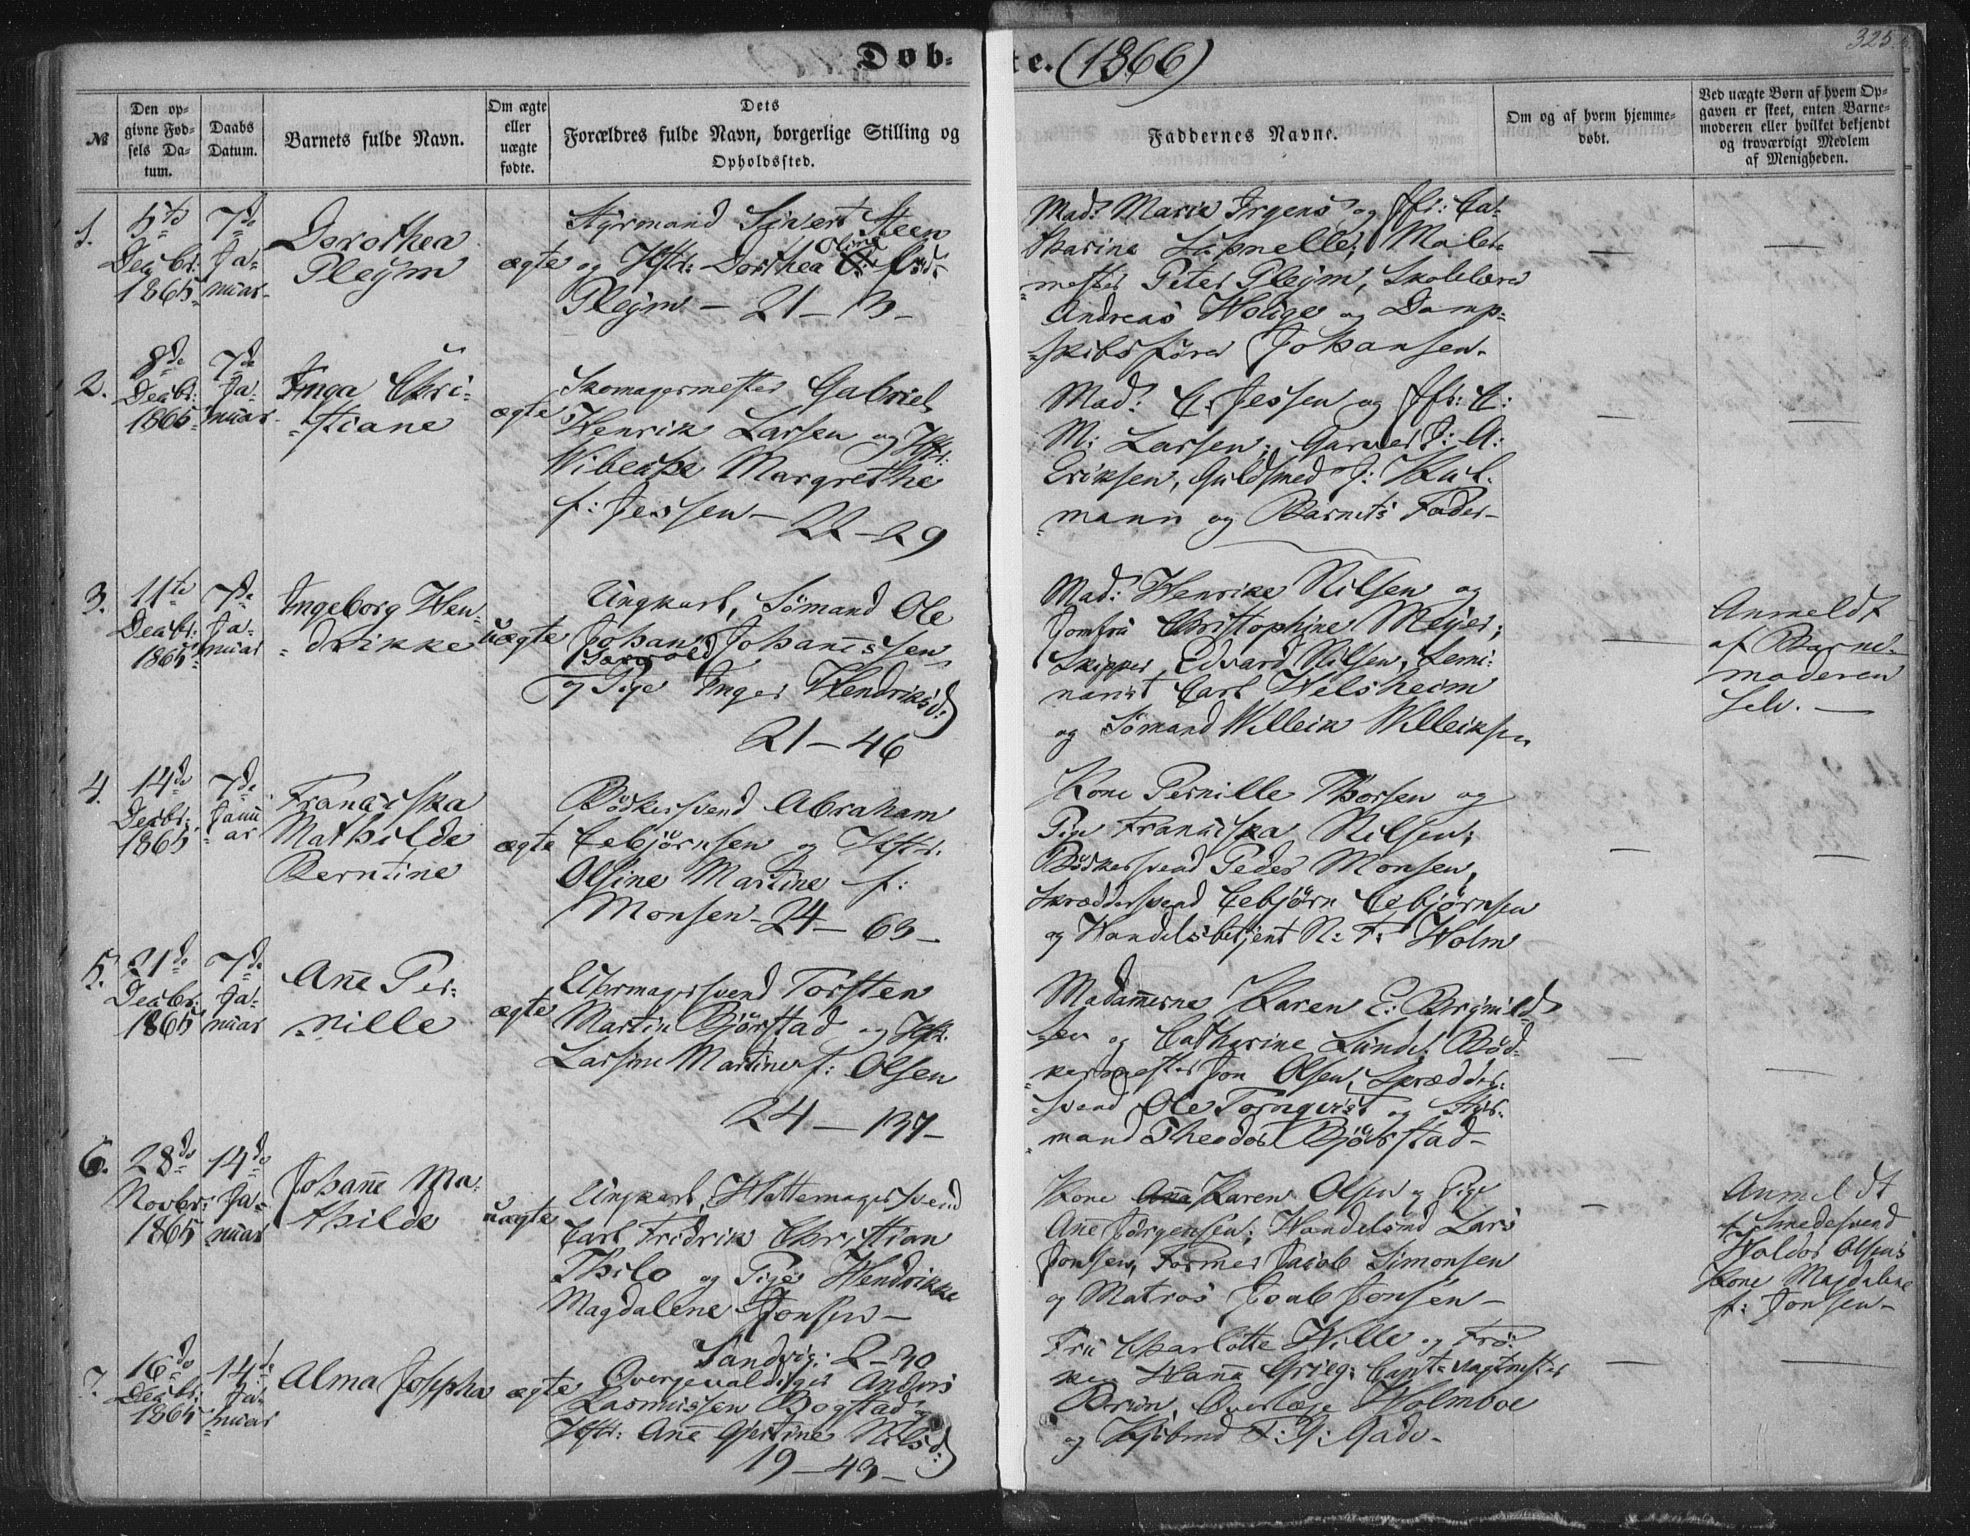 Døb-
te. (1866)
325.
№
Den op-
givne Fød-
sels Da-
tum.
Daabs
Datum.
Barnets fulde Navn.
Om ægte
eller
uægte
fødte.
Dets
Forældres fulde Navn, borgerlige Stilling og
Opholdssted.
Faddernes Navne.
Om og af hvem hjemme-
døbt.
Ved uægte Børn af hvem Op-
gaven er skeet, enten Barne-
moderen eller hvilket bekjendt
og troværdigt Medlem
af Menigheden.
1.
5te
Decbr:
1865
7de
Ja-
nuar
Dorothea
Pleym
ægte
Styrmand Sivert Steen
og Hstr: Dorthea Oline
Pleym – 21 – 3 –
Mad: Marie Irgens og Jfr: Ca-
tharina ; Maler-
mester Peter Pleym, Skolelærer
Andreas og Damp-
skibsfører Johansen.
2.
8de
Decbr:
1865
7de
Ja-
nuar
Inga Chri-
stiane
ægte
Skomagermester Gabriel
Henrik Larsen og Hstr:
Wibeche Margrethe
f: Jessen – 22 – 29
Mad: C. Jessen og Jfr: C:
M: Larsen; Garver J: A:
Eriksen, Guldsmed J: Kul-
mann og Barnets Fader –
3.
11te
Decbr:
1865
7de
Ja-
nuar
Ingeborg Hen-
drikke
uægte
Ungkarl, Sømand Ole
Johan Johannissen
og Pige Inger Hendriksd:
21 – 46
Mad: Henrike Nilsen og
Jomfru Christophine Meyer;
Skipper Edvard Nilsen, Semi-
narist Carl Welsheim
og Sømand Willeik Willeiksen
Anmeldt
af Barne-
moderen
selv. –
4.
14de
Decbr:
1865
7de
Janu
ar
Franciska
Mathilde
Berntine
ægte
Bødkersvend Abraham
Eebjørnsen og Hstr:
Olsine Martine f:
Monsen – 24 – 63 –
Kone Pernille Thorsen og
Pige Franciska Nilsen;
Bødkersvend Peder Monsen,
Skræddersvend Eebjørn Eebjørnsen
og Handelsbetjent N: F: Holm
5.
21de
Decbr:
1865
7de
Ja-
nuar
Anne Per-
nille
ægte
Uhrmagersvend Torsten
Martin Bjørstad og Hstr:
Larsine Martine f: Olsen
24 – 137 –
Madamerne Karen E: Brynild-
sen og Catharine Lund; Bød-
kermester Jon Olsen, Skrædder-
svend Ole Tornqvist og Styr-
mand Theodor Bjørstad –
6.
28de
Novbr:
1865
14de
Ja-
nuar
Johanne Ma-
thilde
uægte
Ungkarl, Hattemagersvend
Carl Fridrik Christian
Thilo og Pige Hendrikke
Magdalene Jonsen –
Sandvig: 2 – 30
Kone Karen Olsen og Pige
Ane Jørgensen; Handelsmd Lars
Jonsen, Former Jacob Simonsen
og Matros Joab Jonsen –
Anmeldt
af Smedesvend
Haldor Olsens
Kone Magdalene
f: Jonsen –
7.
16de
Decbr:
1865
14de
Ja-
nuar
Alma Josepha
ægte
Overjevaldiger Anders
Rasmussen Bogstad og
Hstr: Ane Gjertine Nilsd:
19 – 43 –
Fru Charlotte Wille og Frø-
ken Hanna Grieg; Vagtmester
Brun, Overlæge Holmboe
og Kjøbmd F: G: Gade –